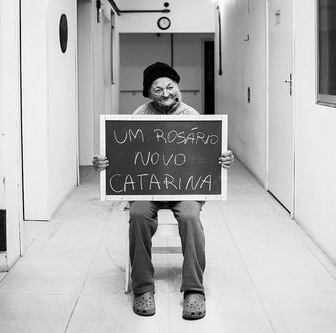 UM ROSÁRIO
NOVO
CATARINA